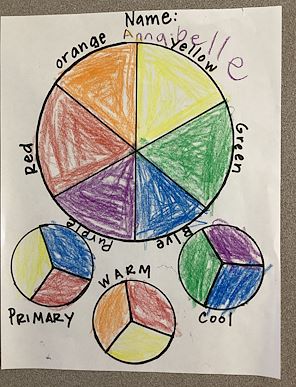 Name:
Annabelle
orange
yellow
Red
Green
Purple
Blue
WARM
PRIMARY
Cool